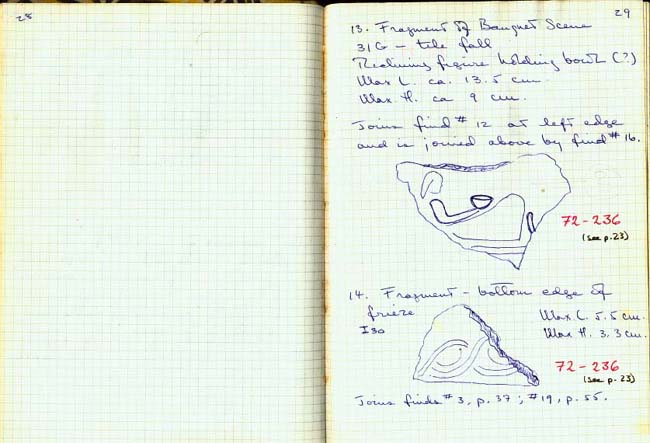 28
29
13. Fragment of Banquet Scene
31G – tile fall
Reclining figure holding bowl (?)
Max L. ca. 13.5 cm.
Max. H. ca 9 cm.
Joins find # 12 at left edge
and is joined above by find # 16.
72-236
(see p. 23)
14. Fragment – bottom edge of
frieze
I30
Max L. 5.5 cm.
Max H. 3.3 cm.
72-236
(see p. 23)
Joins finds # 3, p. 37; # 19, p. 55.